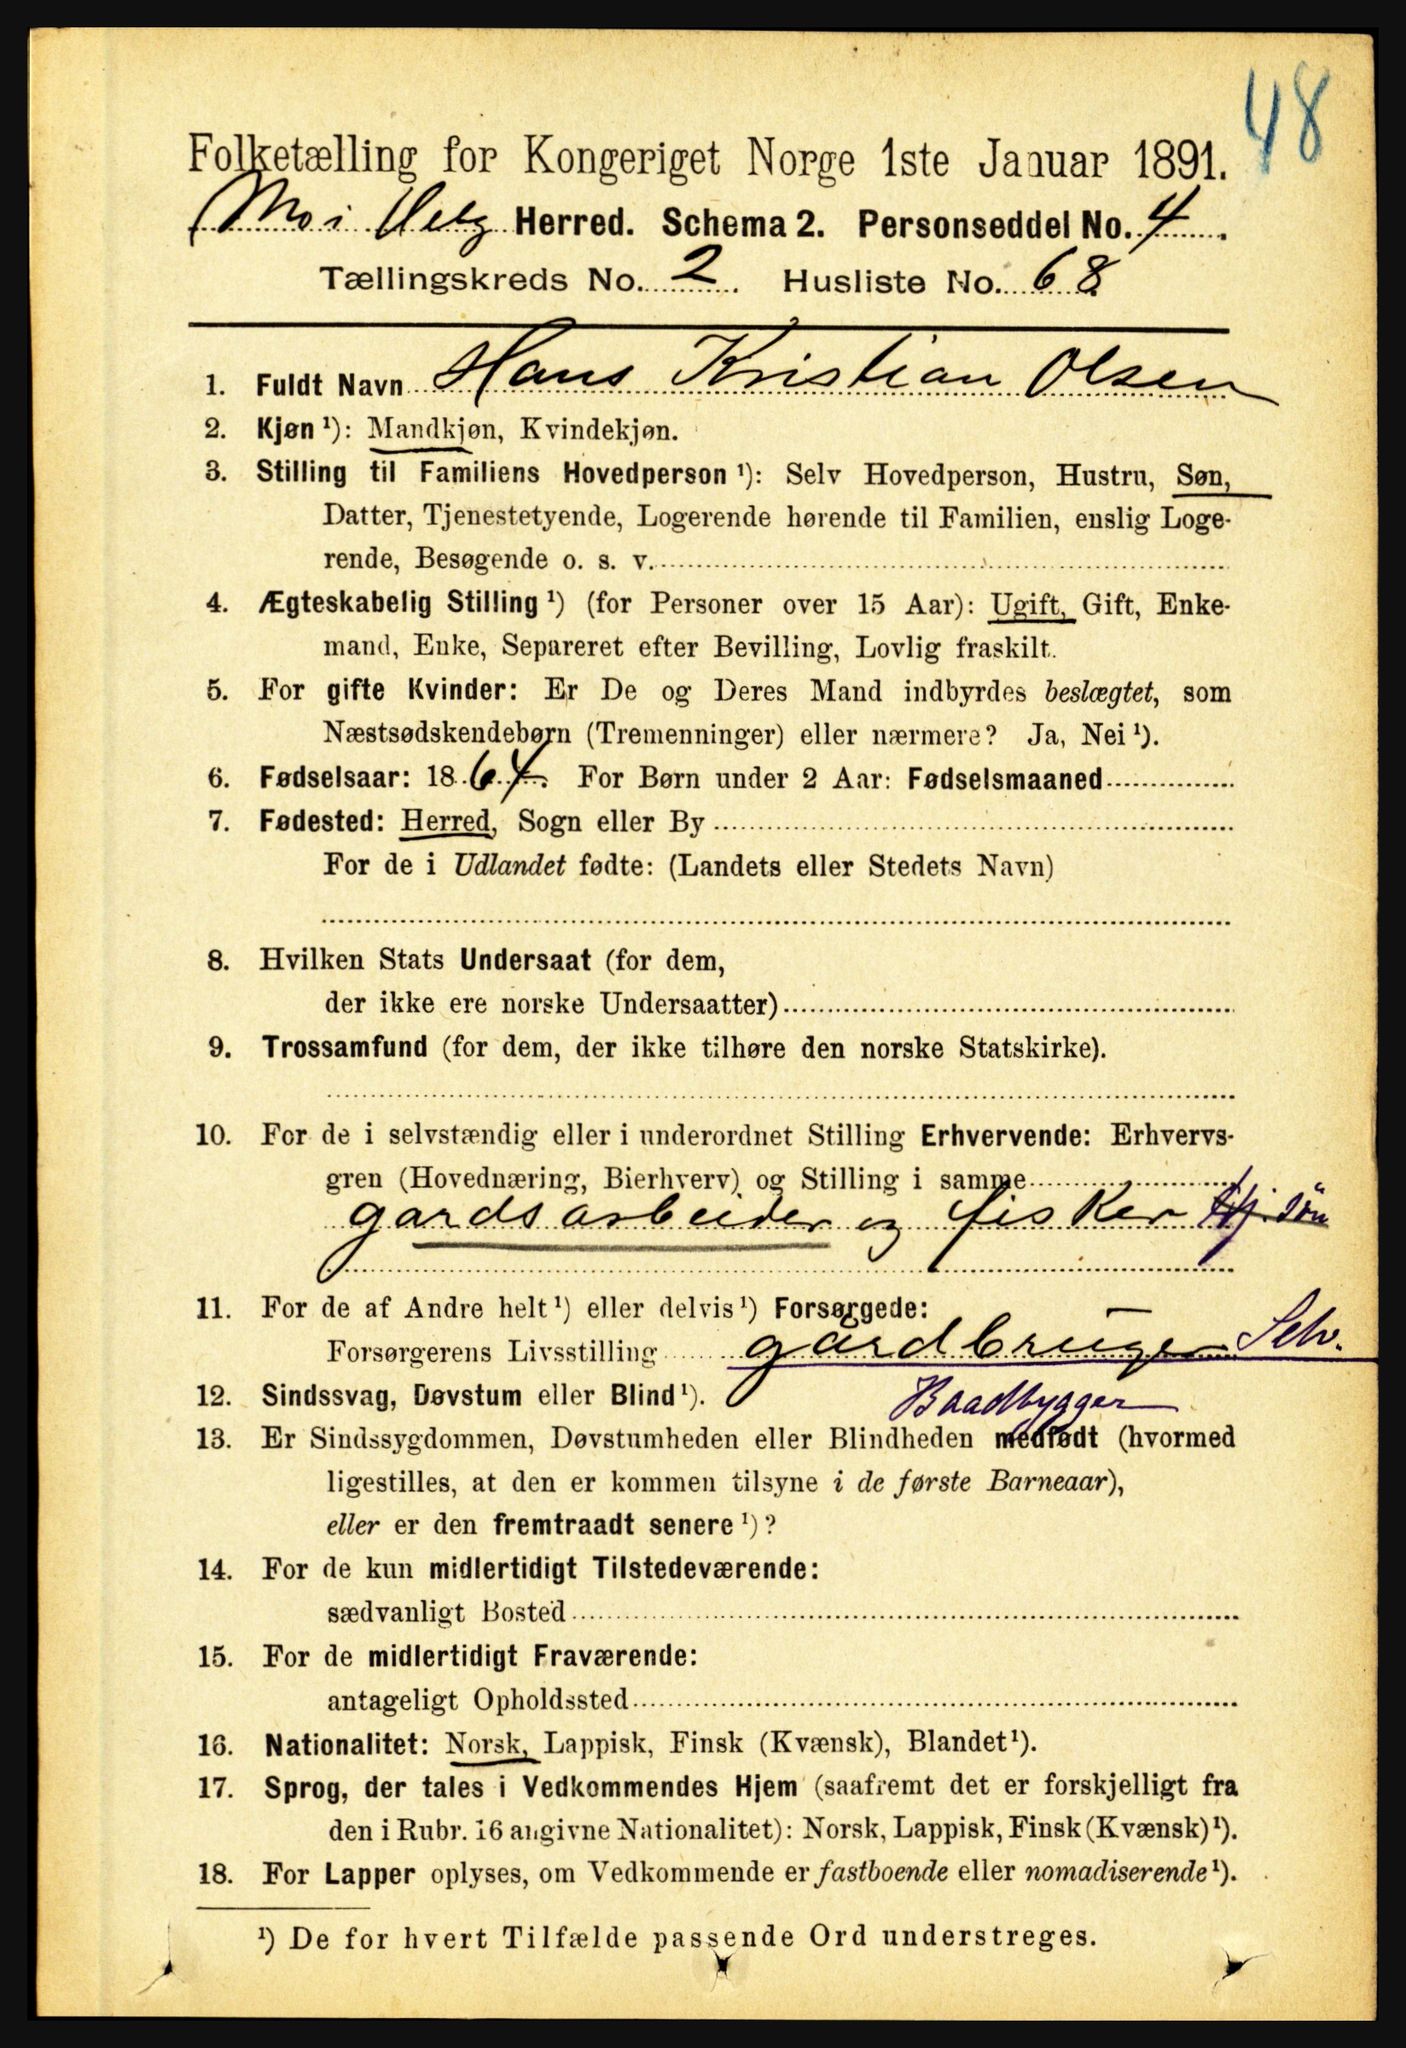 48
Folketælling for Kongeriget Norge 1ste Januar 1891.
Mo i Helg Herred. Schema 2. Personseddel No. 4
Tællingskreds No. 2 Husliste No. 68
1. Fuldt Navn Hans Kristian Olsen
2. Kjøn ¹): Mandkjøn, Kvindekjøn.
3. Stilling til Familiens Hovedperson ¹): Selv Hovedperson, Hustru, Søn,
Datter, Tjenestetyende, Logerende hørende til Familien, enslig Loge-
rende, Besøgende o. s. v.
4. Ægteskabelig Stilling ¹) (for Personer over 15 Aar): Ugift, Gift, Enke-
mand, Enke, Separeret efter Bevilling, Lovlig fraskilt.
5. For gifte Kvinder: Er De og Deres Mand indbyrdes beslægtet, som
Næstsødskendebørn (Tremenninger) eller nærmere? Ja, Nei ¹).
6. Fødselsaar: 1864. For Børn under 2 Aar: Fødselsmaaned
7. Fødested: Herred, Sogn eller By
For de i Udlandet fødte: (Landets eller Stedets Navn)
8. Hvilken Stats Undersaat (for dem,
der ikke ere norske Undersaatter)
9. Trossamfund (for dem, der ikke tilhøre den norske Statskirke).
10. For de i selvstændig eller i underordnet Stilling Erhvervende: Erhvervs-
gren (Hovednæring, Bierhverv) og Stilling i samme
gardsarbeider og fisker Hj. Sön
11. For de af Andre helt ¹) eller delvis ¹) Forsørgede:
Forsørgerens Livsstilling gårdbruger Selv.
12. Sindssvag, Døvstum eller Blind ¹). Baadbygger
13. Er Sindssygdommen, Døvstumheden eller Blindheden medfødt (hvormed
ligestilles, at den er kommen tilsyne i de første Barneaar),
eller er den fremtraadt senere ¹)?
14. For de kun midlertidigt Tilstedeværende:
sædvanligt Bosted
15. For de midlertidigt Fraværende:
antageligt Opholdssted
16. Nationalitet: Norsk, Lappisk, Finsk (Kvænsk), Blandet ¹).
17. Sprog, der tales i Vedkommendes Hjem (saafremt det er forskjelligt fra
den i Rubr. 16 angivne Nationalitet): Norsk, Lappisk, Finsk (Kvænsk) ¹).
18. For Lapper oplyses, om Vedkommende er fastboende eller nomadiserende ¹).
¹) De for hvert Tilfælde passende Ord understreges.